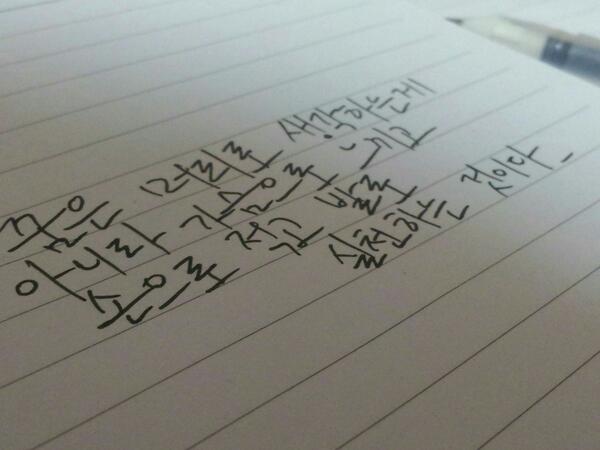 꿈은 머리로 생각하는게
아니라 가슴으로 느끼고
손으로 적고 발로
실천하는 것이다.